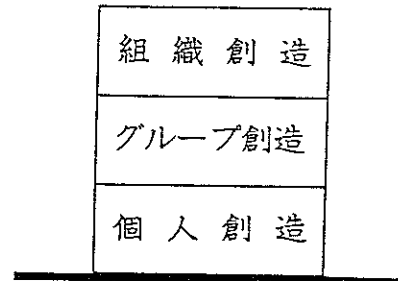 組織創造
グループ創造
個人創造